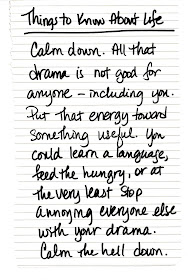 Things to Know About Life
Calm down. All that
drama is not good for
anyone – including you.
Put that energy toward
something useful. You
could learn a language,
feed the hungry, or at
the very least stop
annoying everyone else
with your drama.
Calm the hell down.